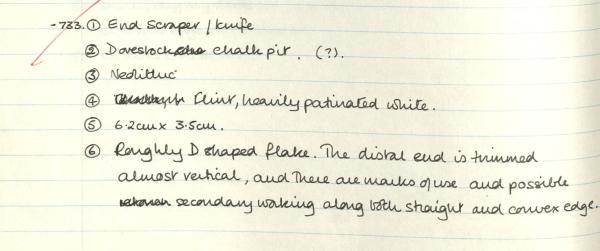 -733. ① End Scraper / knife
② Dovestock chalk pit. (?).
③ Neolithic
④ Flint, heavily patinated white.
⑤ 6.2cm x 3.5cm.
⑥ Roughly D shaped flake. The distal end is trimmed
almost vertical, and there are marks of use and possible
secondary working along both straight and convex edge.